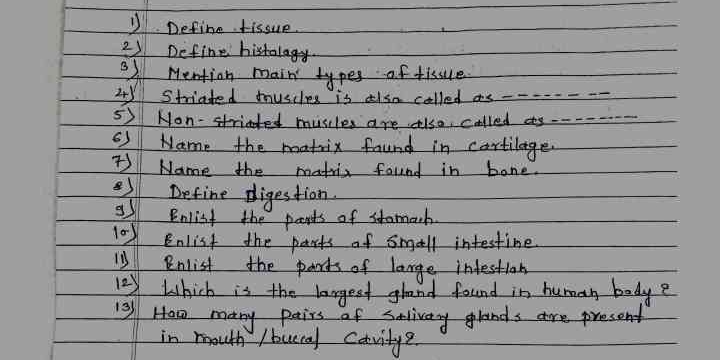 1) Define tissue.
2) Define histology.
3) Mention main types of tissue
4) Striated muscles is also called as --------
5) Non-striated muscles are also called as --------
6) Name the matrix found in cartilage.
7) Name the matrix found in bone.
8) Define Digestion.
9) Enlist the parts of stomach.
10) Enlist the parts of small intestine.
11) Enlist the parts of large intestion
12) Which is the largest gland found in human body?
13) How many pairs of salivary glands are present
in mouth /buccal Cavity?